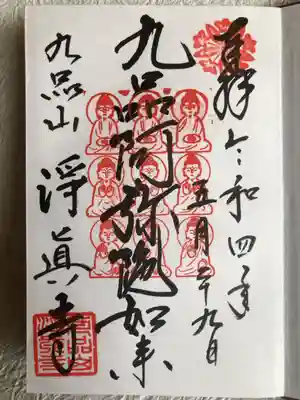 奉拝
令和四年
五月二十九日
九品阿弥陀如来
九品山
浄真寺